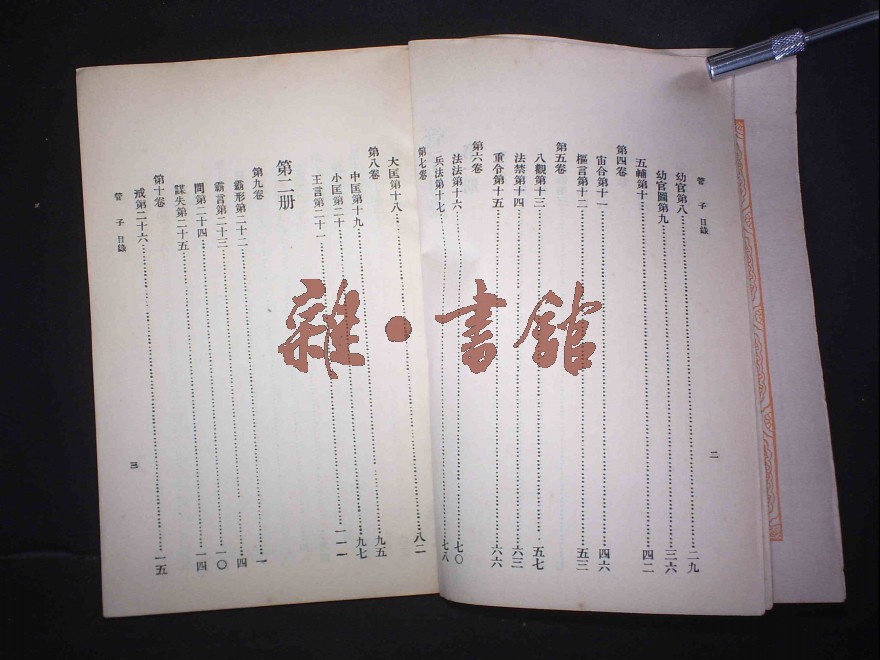 管子 目錄
幼官第八……二九
幼官圖第九……三六
五輔第十……四二
第四卷
宙合第十一……四六
樞言第十二……五三
第五卷
八觀第十三……五七
法禁第十四……六三
重令第十五……六六
第六卷
法法第十六……七〇
兵法第十七……七八
二
第七卷
大匡第十八……八二
第八卷
中匡第十九……九五
小匡第二十……九七
王言第二十一……一一一
第二册
第九卷
霸形第二十二……一
霸言第二十三……四
問第二十四……一〇
謀失第二十五……一四
第十卷
戒第二十六……一五
管子 目錄
三
雜·書館